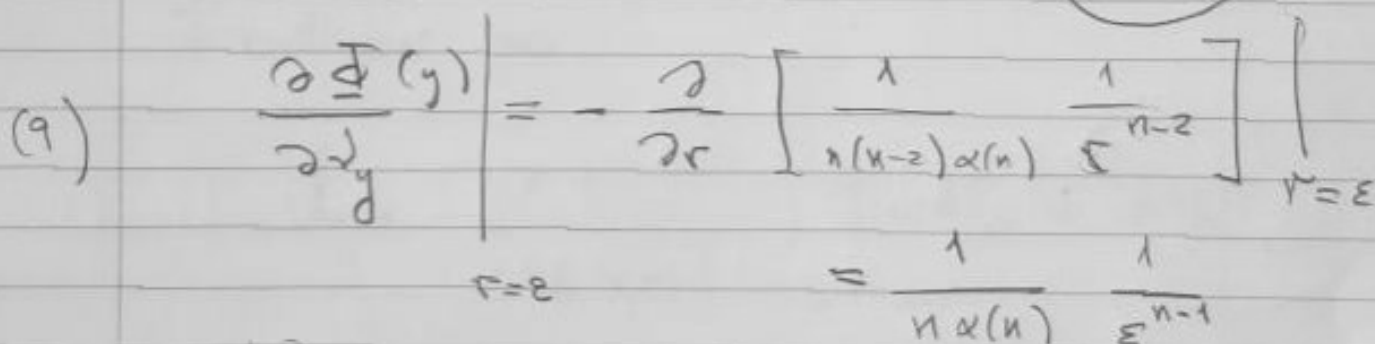 (9) ∂Φ(y)/∂ν_y |_{r=ε} = - ∂/∂r [ 1/(n(n-2)α(n)) 1/r^{n-2} ] |_{r=ε}
= 1/(nα(n)) 1/ε^{n-1}